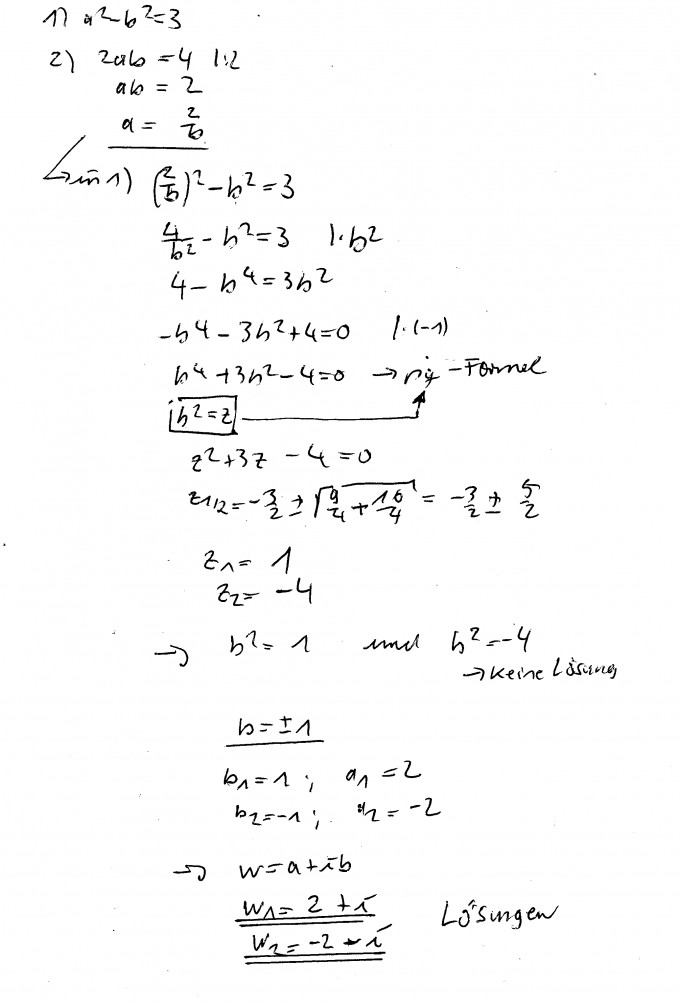 1) a²-b²=3
2) 2ab = 4 |:2
ab = 2
a = 2/b
↳ in 1) (2/b)² - b² = 3
4/b² - b² = 3 |·b²
4 - b⁴ = 3b²
-b⁴ - 3b² + 4 = 0 |·(-1)
b⁴ + 3b² - 4 = 0 → pq-Formel
b² = z
z² + 3z - 4 = 0
z1/2 = -3/2 ± √(9/4 + 16/4) = -3/2 ± 5/2
z₁ = 1
z₂ = -4
→ b² = 1 und b² = -4
→ keine Lösung
b = ±1
b₁ = 1 ; a₁ = 2
b₂ = -1 ; a₂ = -2
→ w = a + ib
w₁ = 2 + i Lösungen
w₂ = -2 - i